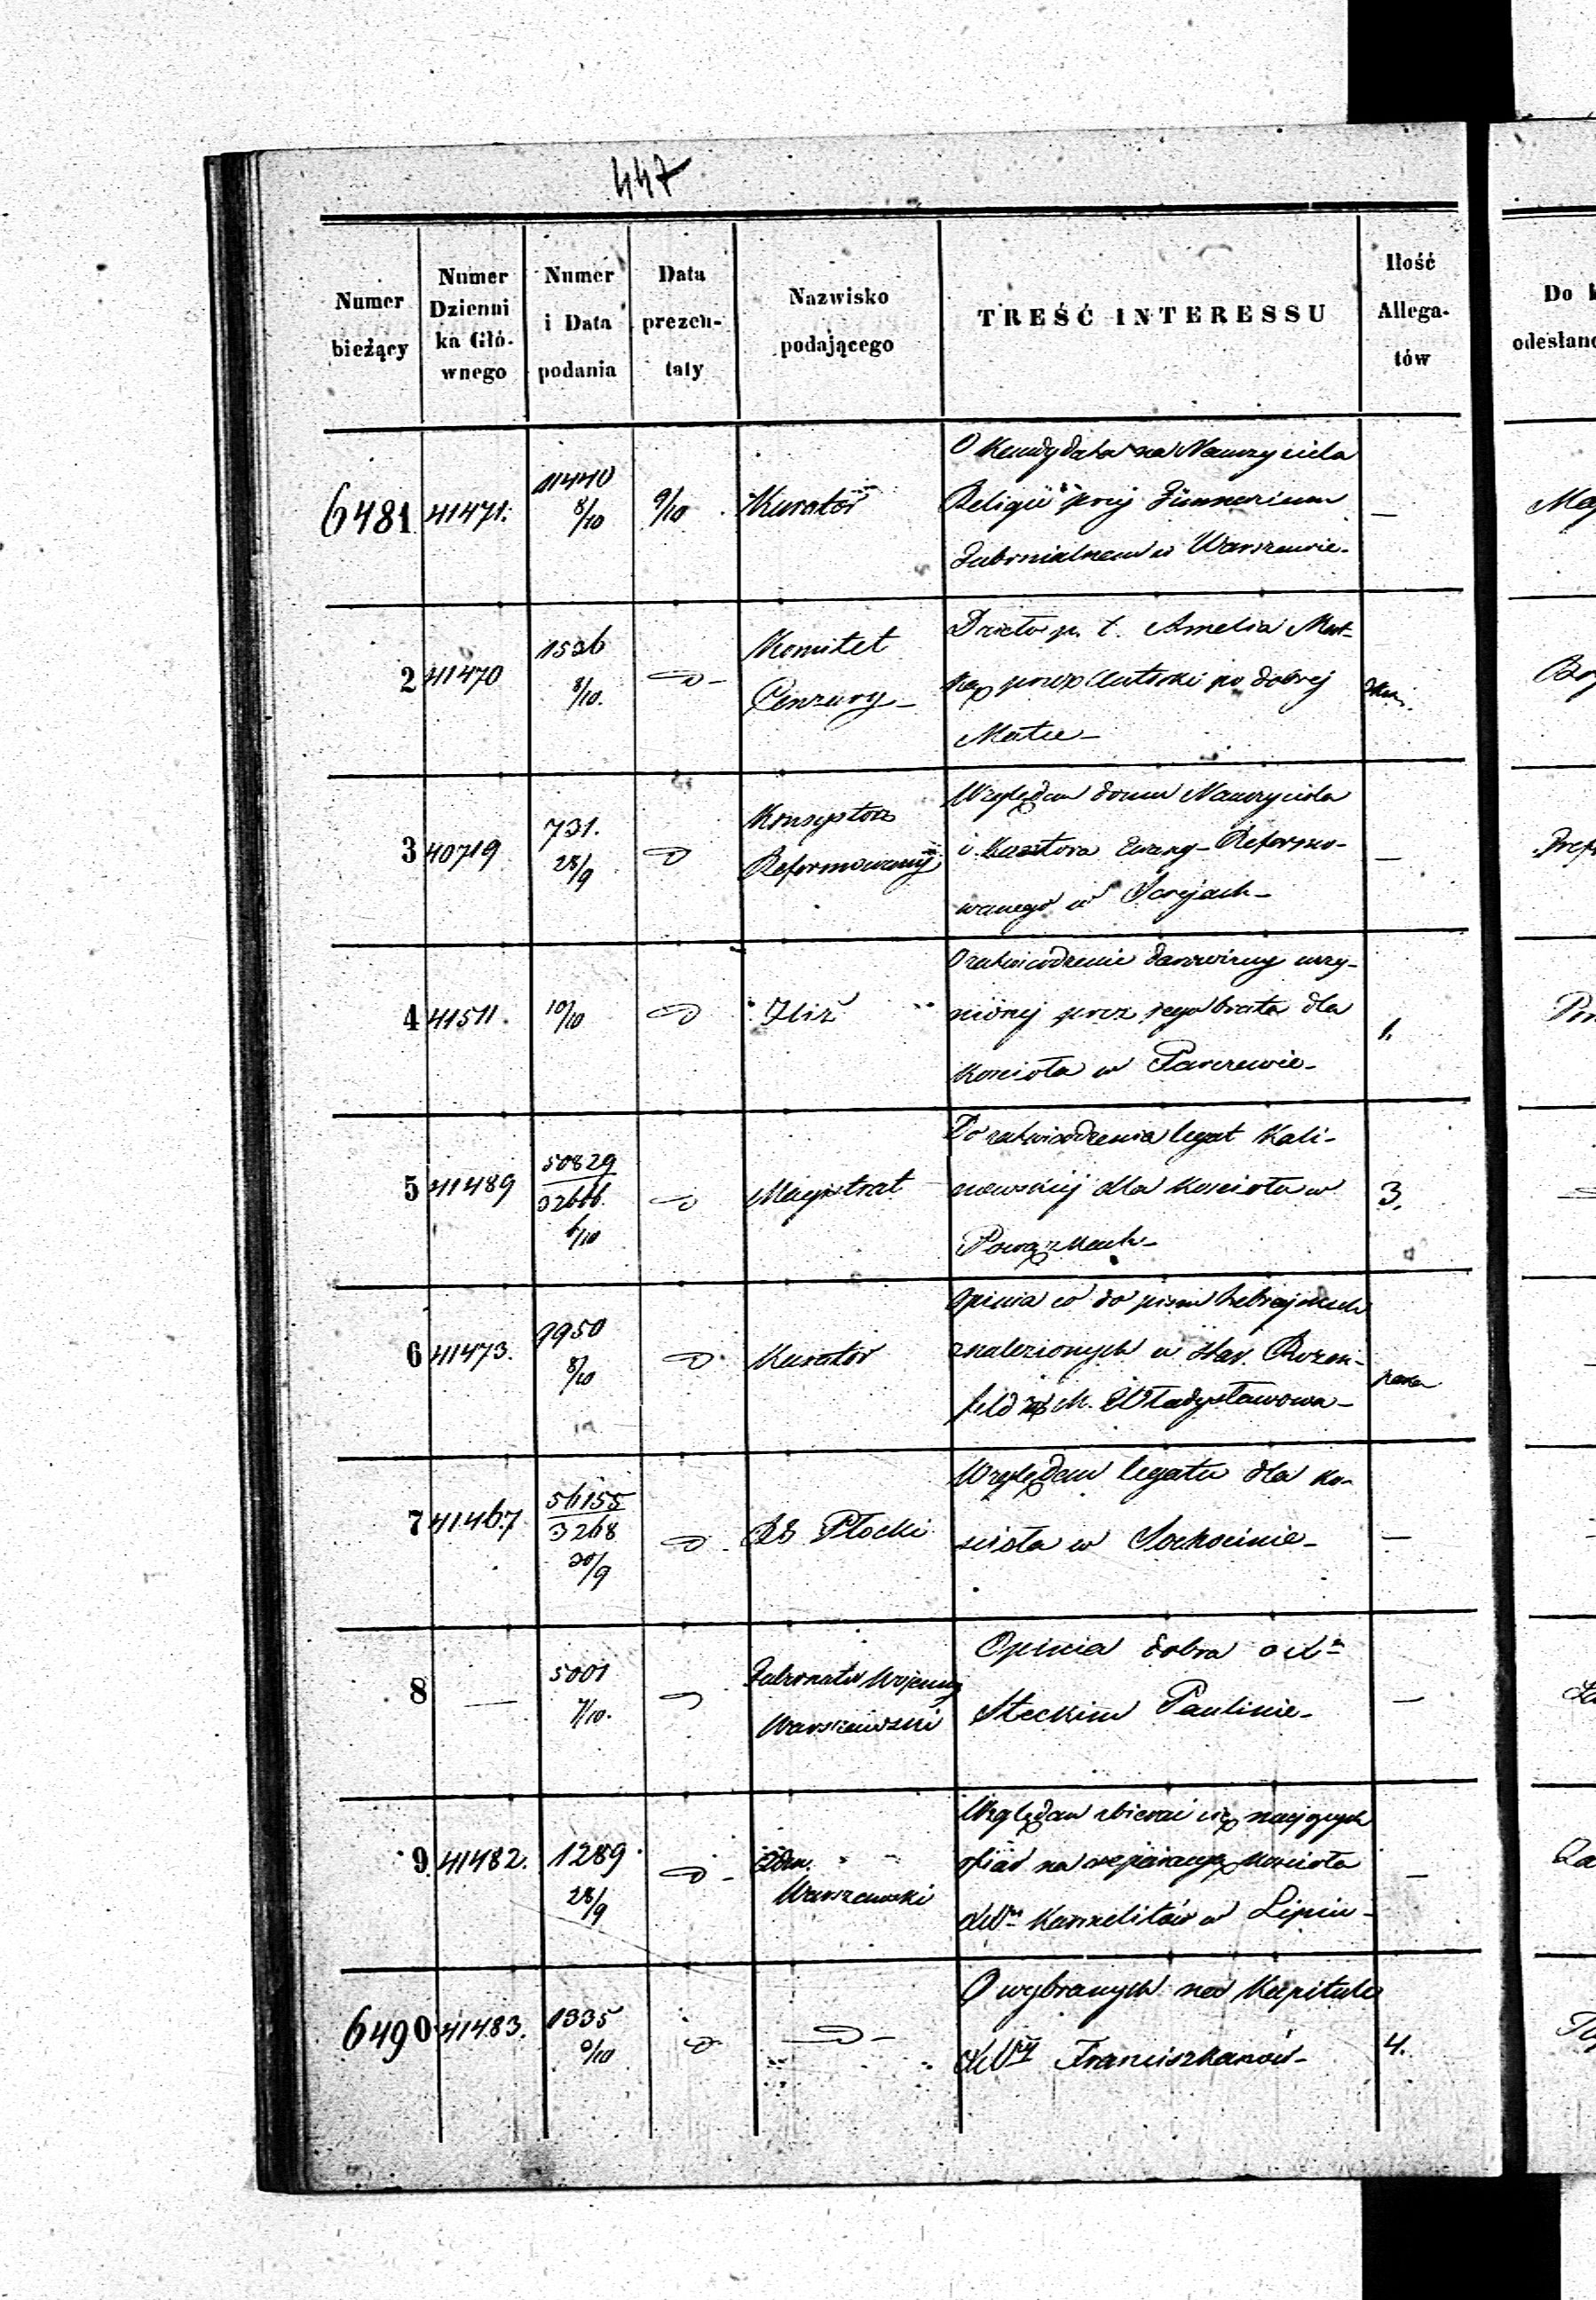 447
Numer bieżący
Numer Dzienni ka Głó- wnego
Numer i Data podania
Data prezen- taty
Nazwisko podającego
TREŚĆ INTERESSU
Ilość Allega- tów
Do
odesłano
6481 41471. 11440 8/10 9/10 Kurator
O Kandydata na Nauczyciela
Religii przy Gimnazium
Gubernialnem w Warszawie –
2 41470 1526 8/10. D – Komitet Cenzury –
Dzieło p. t. Amelia Mat-
ką przez Autorki po dobrej
Matce –
3 40719 731. 28/9 D Konsystorz Reformowany
Względem domu Nauczyciela
i Kantora Ewang – Reformo-
wanego w Serejach – –
4 41511. 10/10 D
O zatwierdzenie darowizny uczy-
nionej przez jego brata dla
Kościoła w Parczewie – 1.
5 41489 50829 32666. 6/10 D Magistrat
Do zatwierdzenia legat Kali-
nowskiej dla Kościoła w
Powązkach – 3.
6 41473. 9950 8/10 D Kurator
Opinia co do pism hebrajskich
znalezionych u Star. Rozen-
feld z M. Władysławowa –
7 41467 56155 3268 20/9 D RG Płocki
Względem legatu dla ko-
ścioła w Sochocinie – –
8 — 5001 7/10. Gubernator Wojenny Warszawski
Opinia dobra o X.
Steckim Paulinie – –
9 41482. 1289 28/9 D – Adm. Warszawski
Względem zbierać się mających
ofiar na reperacyą Kościoła
XX. Karmelitów w Lipiu – –
6490 41483. 1335 D D –
O wybranych na Kapitule
XX. Franciszkanów – 4.